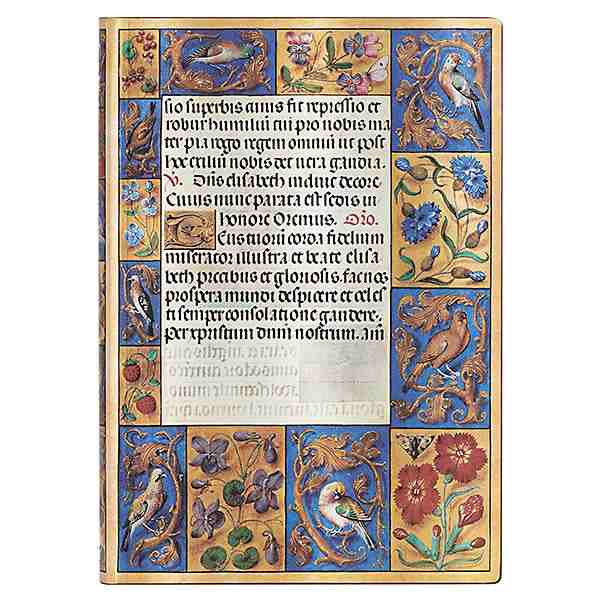 sio superbis cuius fit repressio et
robur humiliũ cui pro nobis ma
ter pia rogo regem omniũ ut post
hoc exiliũ nobis det vera gaudia.
V. Dñs elisabeth induit decore.
Cuius nunc parata est sedis in
honore Oremus. Oro.
Deus tuorũ corda fidelium
miserator illustra et beate elisa
beth precibus et gloriosis. fac nos
prospera mundi despicere et celes
ti semper consolatione gaudere.
Per xpristum dñm nostrum. am̃